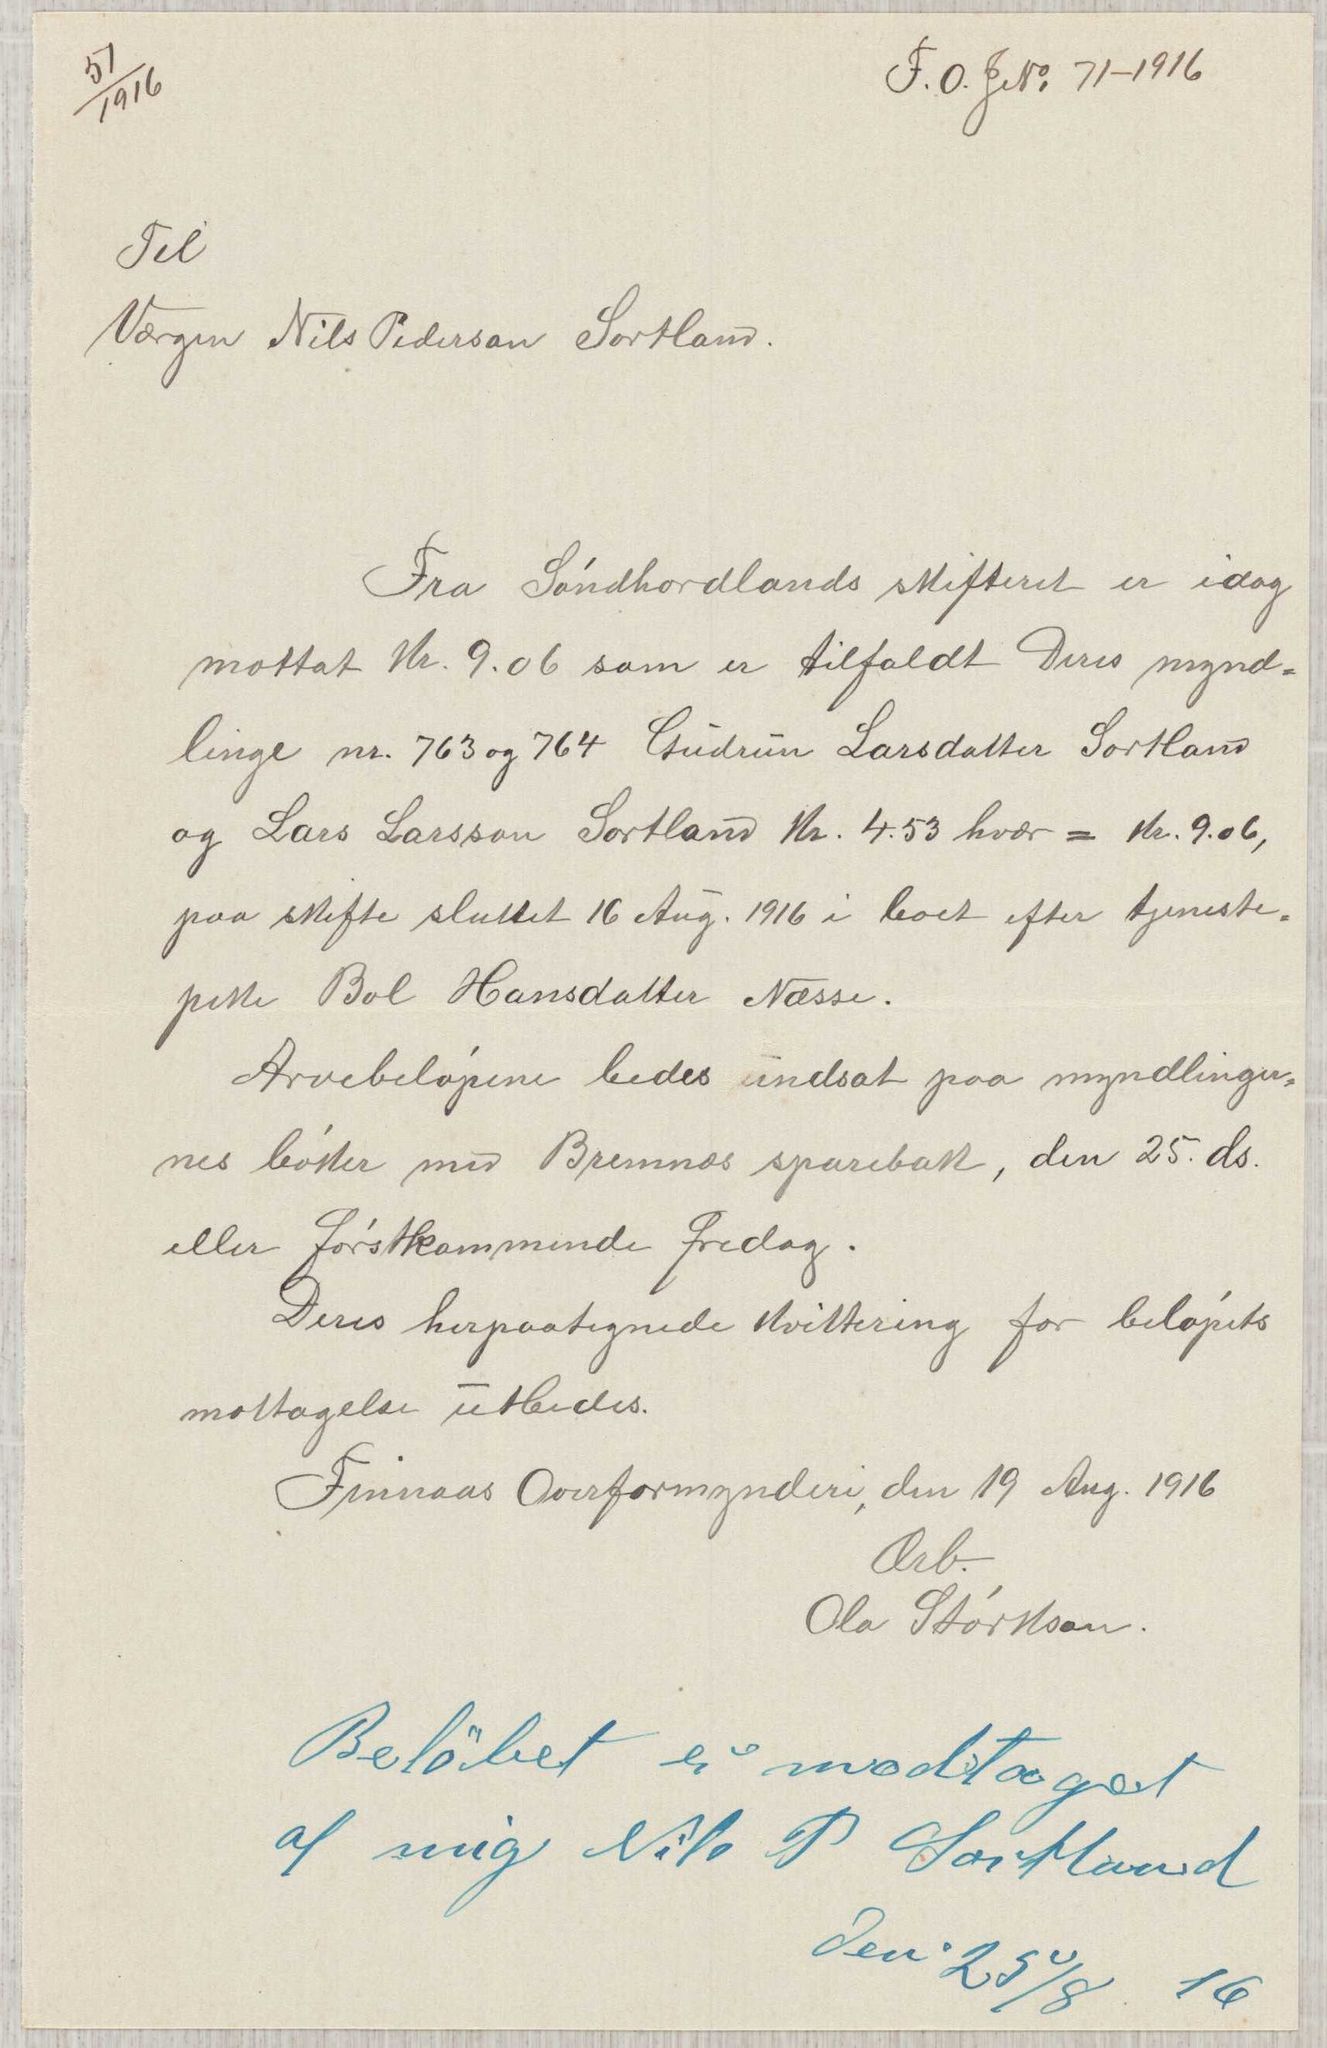 57
1916
F. O. J.No. 71-1916
Til
Værgen Nils Pederson Sortland.
Fra Søndhordlands skifteret er idag
mottat kr. 9.06 som er tilfaldt Deres mynd=
linge nr. 763 og 764 Gudrun Larsdatter Sortland
og Lars Larsson Sortland kr. 4.53 hvær = kr. 9.06,
paa skifte sluttet 16 Aug. 1916 i boet efter tjeneste=
pike Bol Hansdatter Næsse.
Arvebeløpene bedes indsat paa myndlinger=
nes bøker med Bremnes sparebak, den 25. ds.
eller førstkommende fredag.
Deres herpaategnede kvittering for beløpets
mottagelse utbedes.
Finnaas Overformynderi, den 19 Aug. 1916
Ærb.
Ola Størkson.
Belöbet er modtaget
af mig Nils P Sortland
den 25/8 16